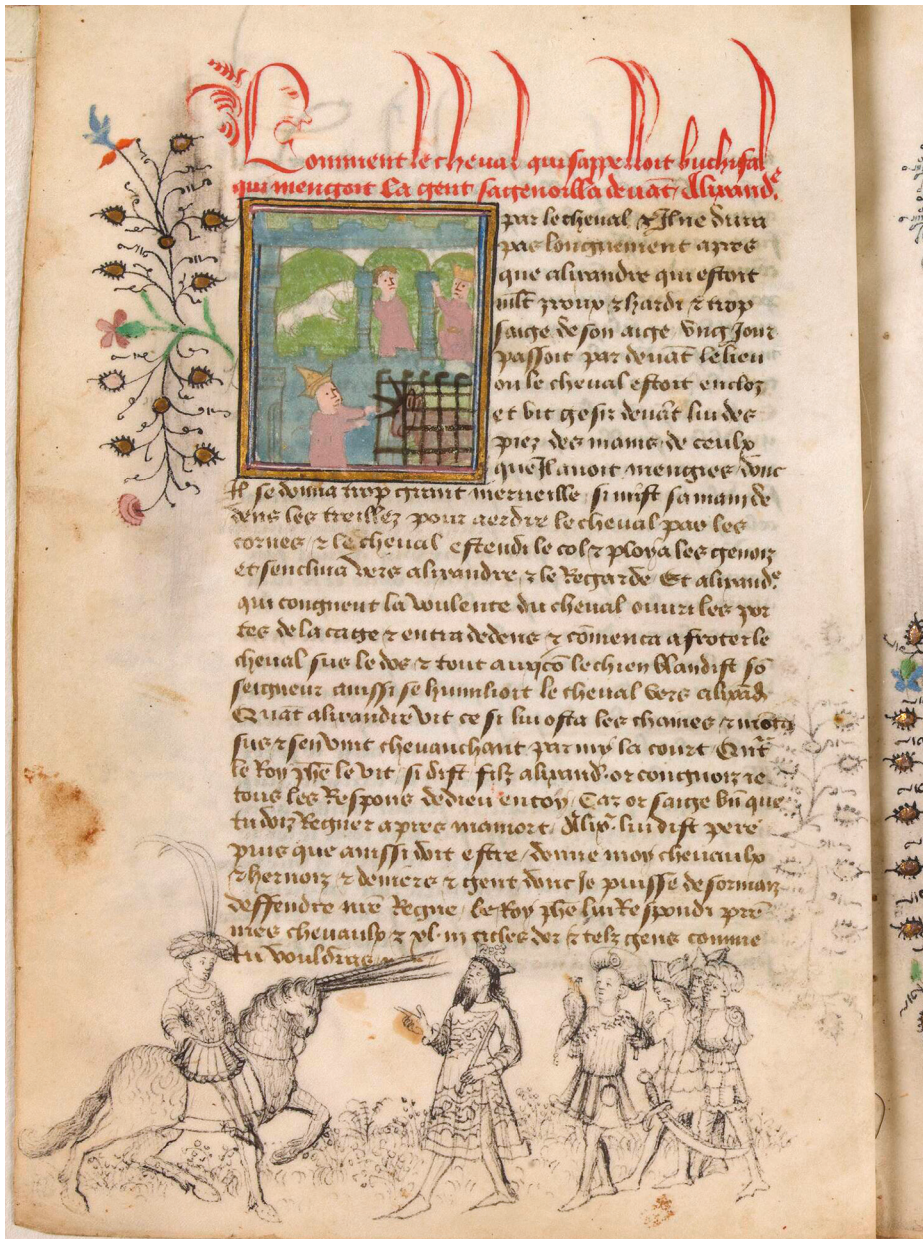 Comment le cheval qui sappelloit buchifal
qui mengoit la gent sagenoilla devāt Alixandᵉ.
par le cheval ⁊ Il ne dura
pas longuement apres
que alixandre qui estoit
mlt preux ⁊ hardi ⁊ trop
saige de son aige ung Jour
passoit par devāt le lieu
ou le cheval estoit encloz
et vit gesir devāt lui des
piez des mains de ceulx
que Il avoit mengies donc
Il se donna trop grant merveille si mist sa main de
dens les treillez pour aerdre le cheval par les
cornes ⁊ le cheval estendi le col ⁊ ploya les genoiz
et senclina vers alixandre ⁊ le Regarde Et alixandᵉ
qui congneut la voulente du cheval ouvri les por
tes de la cage ⁊ entra dedens ⁊ cōmenca a froter le
cheval sus le dos ⁊ tout le chien blandist sō
seigneur aussi se humilioit le cheval vers alixād
Quāt alixandre vit ce si lui osta les chaines ⁊ mōta
sus ⁊ sen vint chevauchant par my la court
le Roy phē le vit si dist filz alixand or congnoiz ie
tous les Respons de dieu en toy Car or saige bn̄ que
tu doiz Regner apres ma mort Alixᵉ lui dist pere
puis que aussi doit estre donne moy chevaulx
⁊ hernoiz ⁊ deniers ⁊ gent donc Je puisse desormaiz
deffendre nrē Regne le Roy phē lui Respondi prē
mes chevaulx ⁊ xl m cicles dor ⁊ telz gens comme
tu vouldras